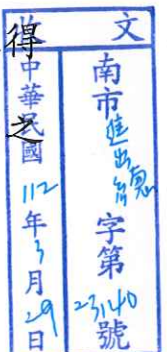 收文
南市進出字第23140號
中華民國112年3月29日
得之